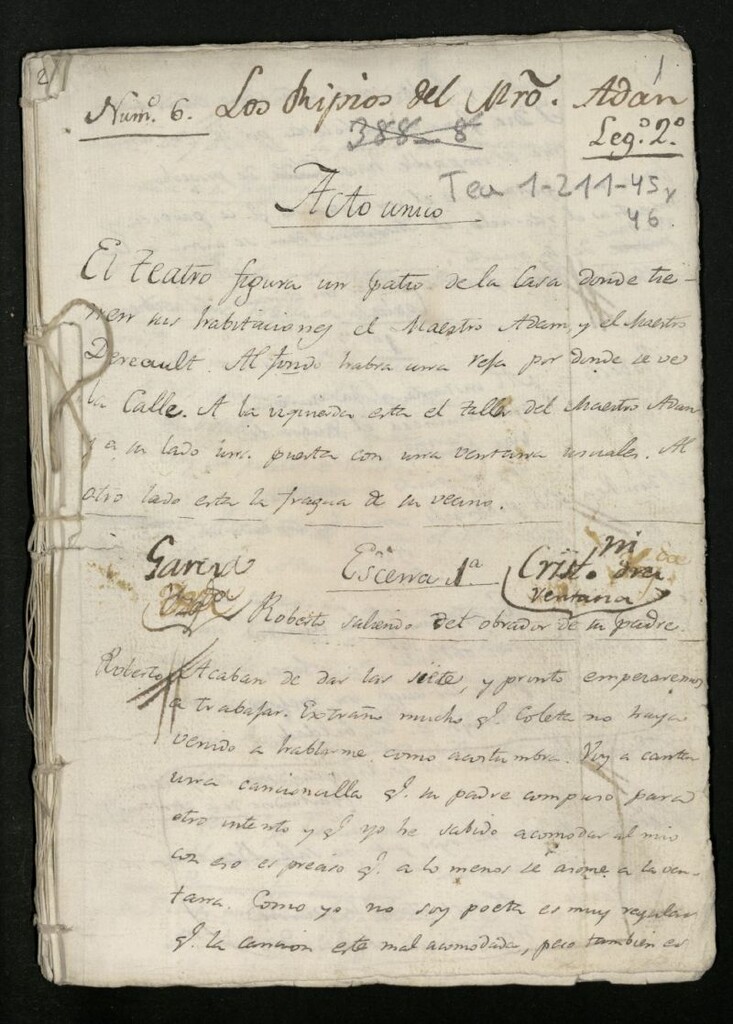 2
1
Num.º 6. Los Ripios del Mrõ. Adán
388-8
Leg.º 2.º
Tea 1-211-45 y
46.
Acto unico
El Teatro figura un patio de la Casa donde tie-
nen sus habitaciones el Maestro Adam y el Maestro
Dereault. Al fondo habra una reja por donde se ve
la Calle. A la izquierda esta el taller del Maestro Adam
y a su lado una puerta con una ventana usuales. Al
otro lado esta la fragua de su vecino.
Escena 1ª
Crist.
ventana
Roberto saliendo del obrador de su padre.
Roberto Acaban de dar las siete, y pronto empezaremos
a trabajar. Extraño mucho q.e Coleta no haya
venido a hablarme como acostumbra. Voy a cantar
una cancioncilla q.e su padre compuso para
otro intento y q.e yo he sabido acomodar al mio
con eso es preciso q.e a lo menos se asome a la ven-
tana. Como yo no soy poeta es muy regular
q.e la cancion este mal acomodada, pero tambien es